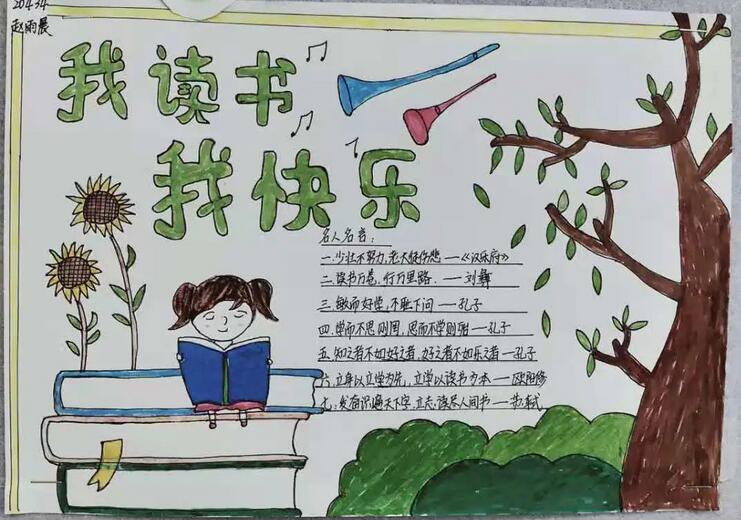 20434
赵雨晨
我读书
我快乐
名人名言：
一.少壮不努力,老大徒伤悲——《汉乐府》
二.读书万卷,行万里路.——刘彝
三.敏而好学,不耻下问——孔子
四.学而不思则罔,思而不学则殆——孔子
五.知之者不如好之者,好之者不如乐之者——孔子
六.立身以立学为先,立学以读书为本——欧阳修
七.发奋识遍天下字,立志读尽人间书——苏轼